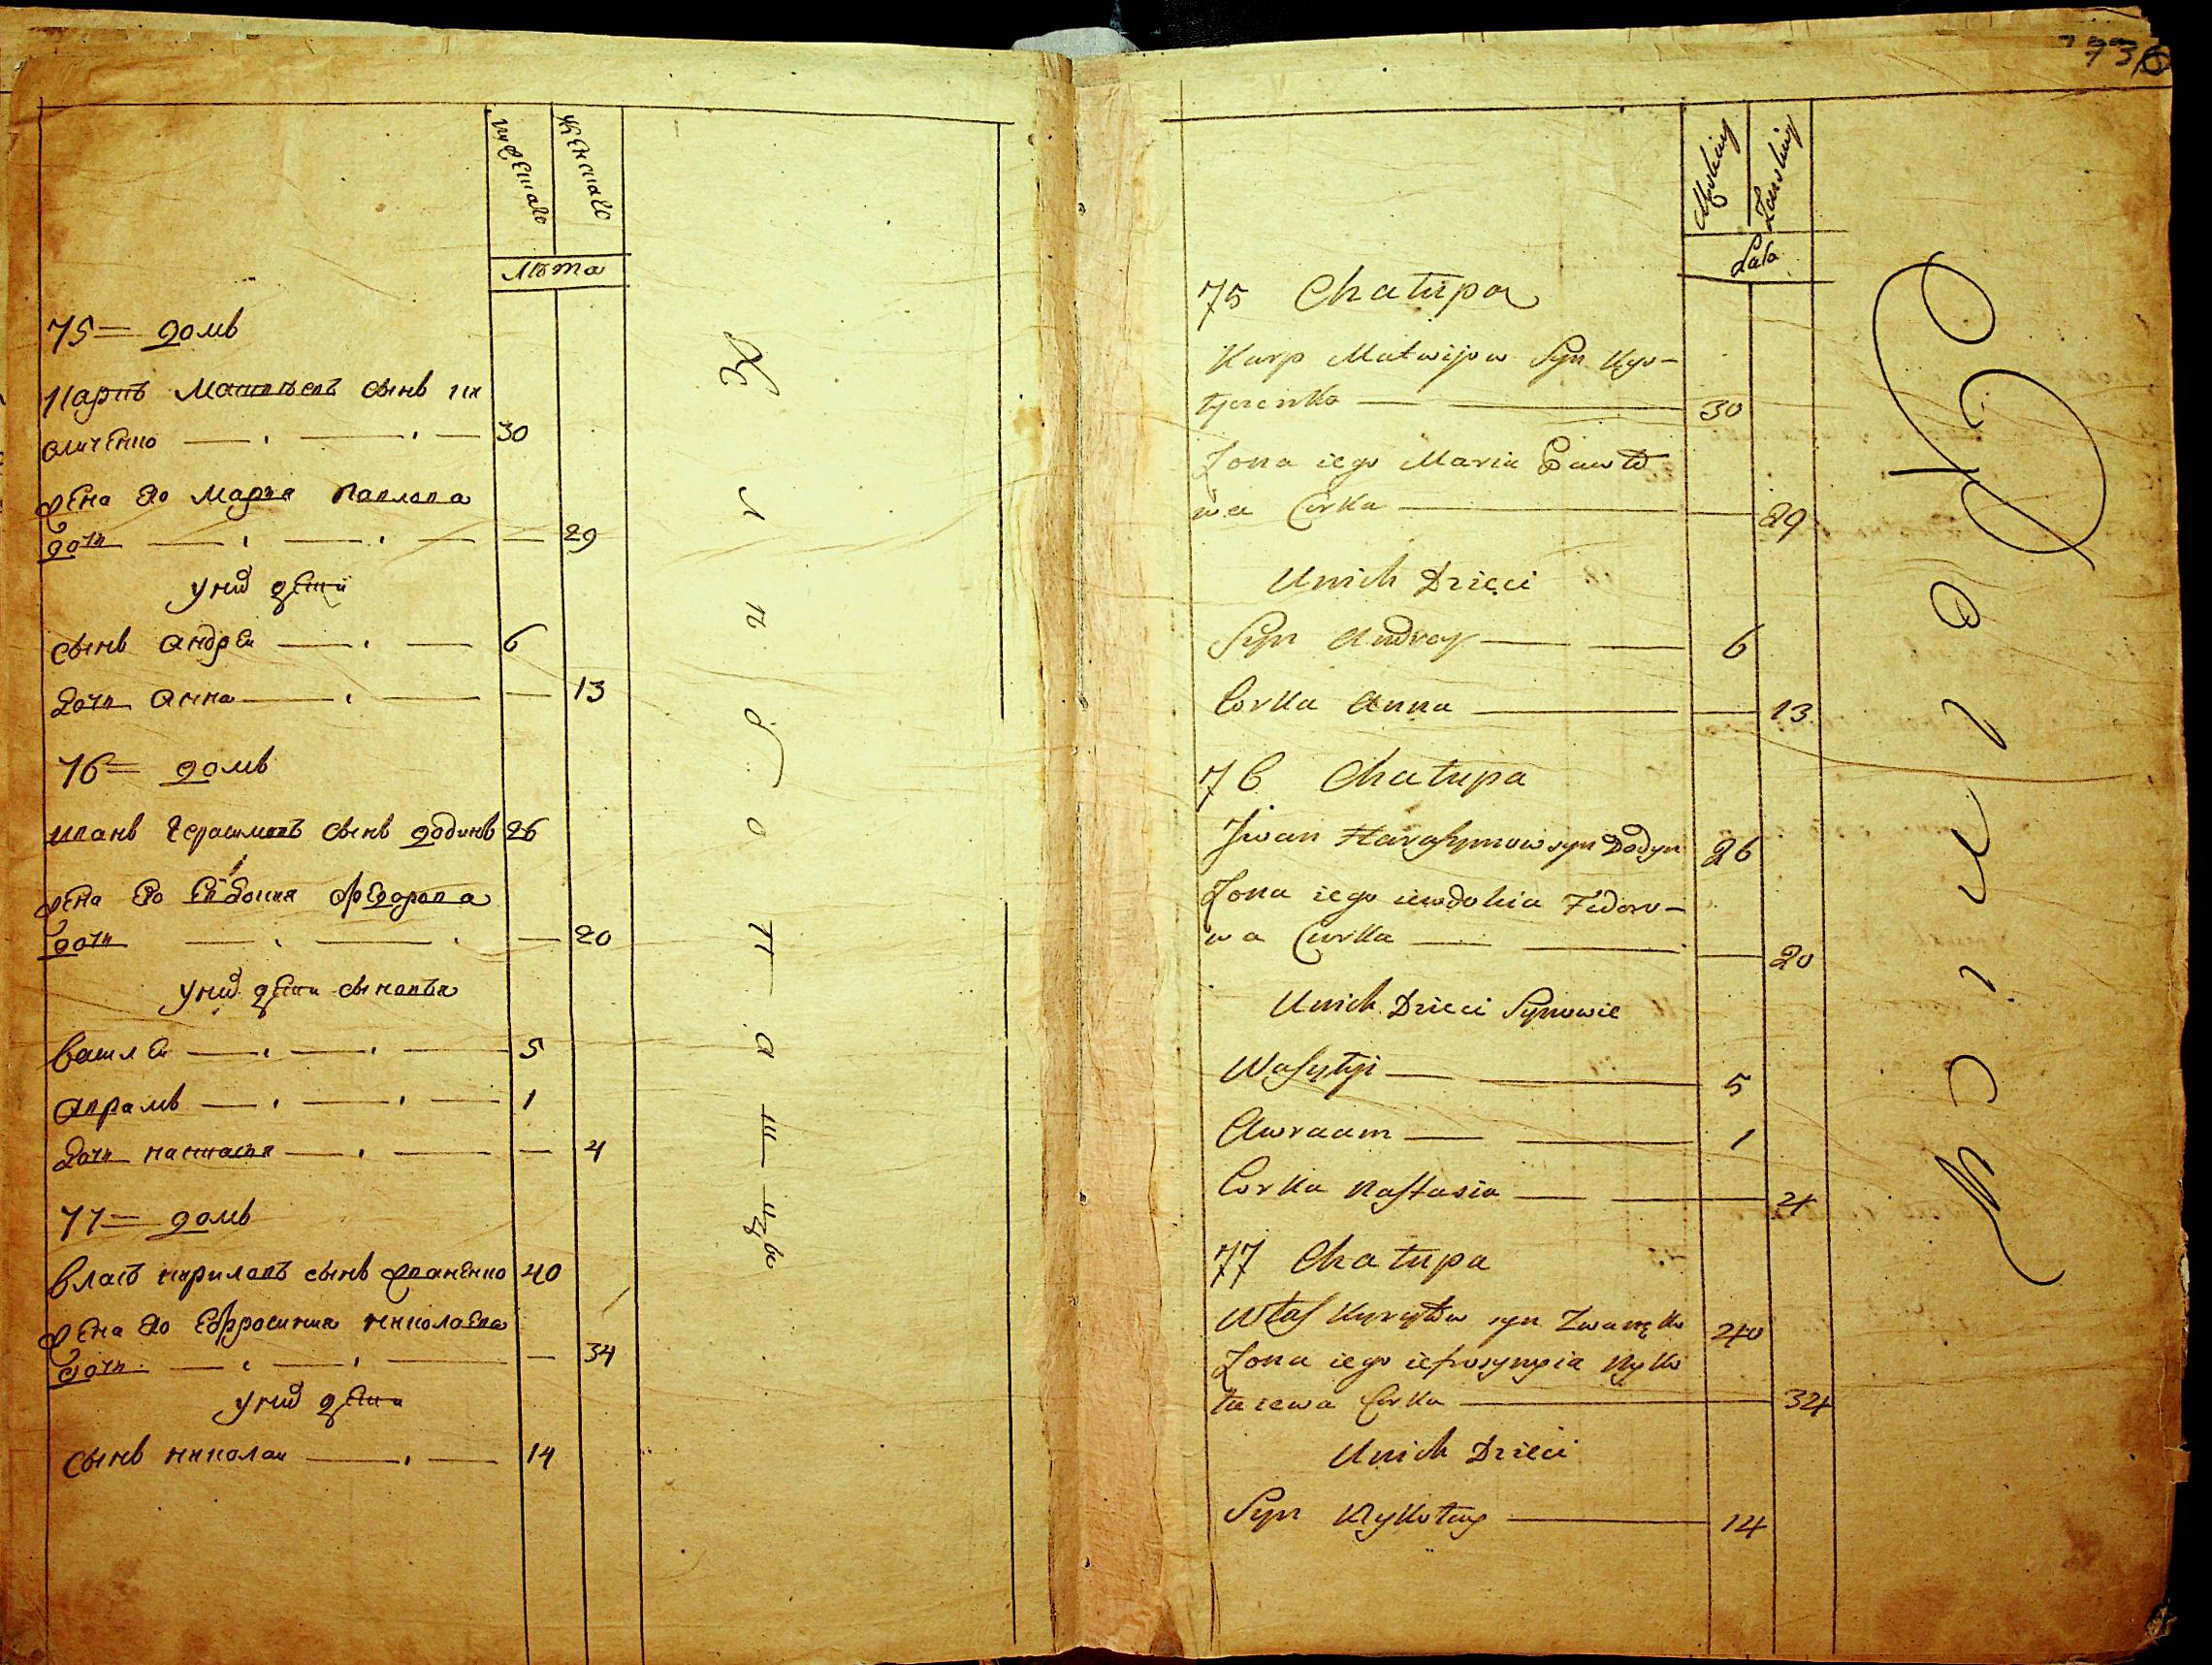 мужеска
женска
лѣта
75 = домъ
Карпъ Матвѣевъ сынъ ки
энченко — . — . — 30
жена его Марія Павлова
дочь — . — . — — 29
у них дети
сынъ андрей — . — 6
дочь анна — . — — 13
76 = домъ
иванъ Герасимовъ сынъ додинъ 26
жена его Евдокия Федорова
дочь — . — . — 20
у них дети сыновѣя
Василей — . — . — 5
аврамъ — . — . — 1
дочь настасѣя — . — — 4
77 = домъ
Власъ кириловъ сынъ жваненко 40
жена его Ефросиния николаева
дочь — . — . — — 34
у них дети
сынъ николай — . — 14
Męskiey
Zenskiey
Lata
75 Chałupa
Karp Matwijow Syn Kyo-
— — 30
Zona iego Maria Pawło
wa Corka — — 29
Unich Dzieci
Syn Andrey — — 6
Corka Anna — — 13
76 Chałupa
Jwan Harasymow syn Dodyn 26
Zona iego iewdokia Fedoro-
wa Curka — — — 20
Unich Dzieci Synowie
Wasylyi — — 5
Awraam — — 1
Corka Nastasia — — 4
77 Chałupa
Włas Kyryłow syn Zwanęko 40
Zona iego iefrosynyia Nyko
łaiewa Corka — 34
Unich Dzieci
Syn Nykołay — 14